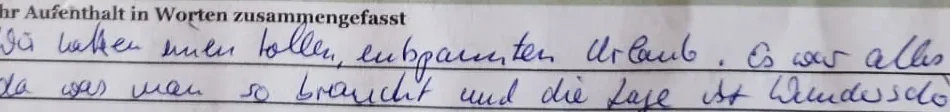 hr Aufenthalt in Worten zusammengefasst
Wir hatten einen tollen, entspannten Urlaub. Es war alles
da was man so braucht und die Lage ist Wundersch